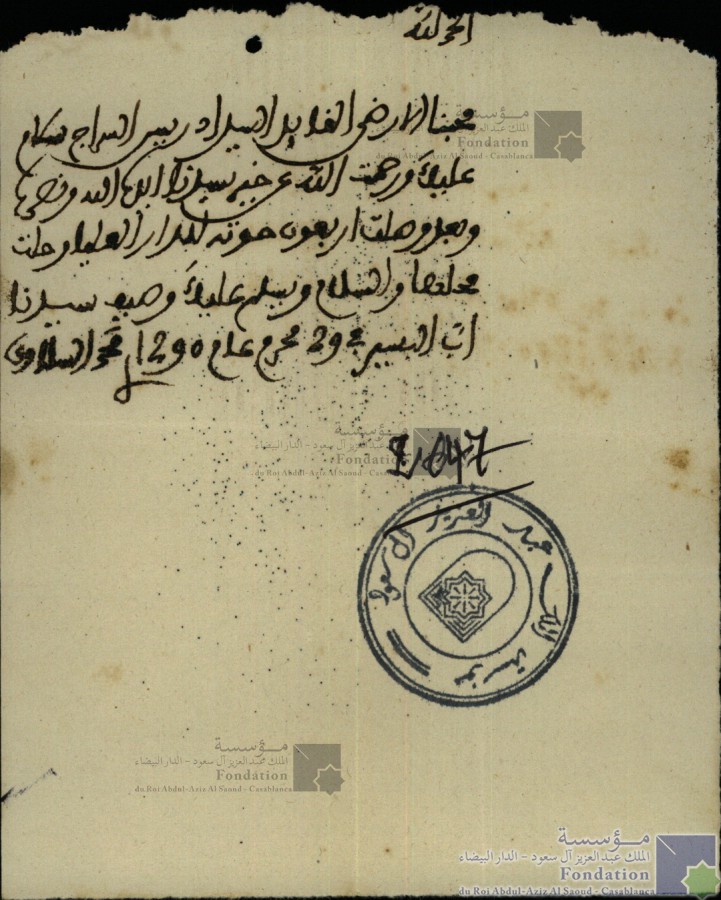 الحمد لله
محبنا الارضى القايد السيد ادريس السراج سلام
عليك ورحمت الله عن خير سيدنا ايده الله ونصره
وبعد وصلت اربعون حوته للدار العليا وحلت
محلها والسلام ويسلم عليك وصيف سيدنا
في 29 محرم عام 1290 محمد السلاوي
2047
مؤسسة الملك عبد العزيز آل سعود
مؤسسة
الملك عبد العزيز آل سعود - الدار البيضاء
Fondation
du Roi Abdul-Aziz Al Saoud - Casablanca
مؤسسة
الملك عبد العزيز آل سعود - الدار البيضاء
Fondation
du Roi Abdul-Aziz Al Saoud - Casablanca
مؤسسة
الملك عبد العزيز آل سعود - الدار البيضاء
Fondation
du Roi Abdul-Aziz Al Saoud - Casablanca
مؤسسة
الملك عبد العزيز آل سعود - الدار البيضاء
Fondation
du Roi Abdul-Aziz Al Saoud - Casablanca